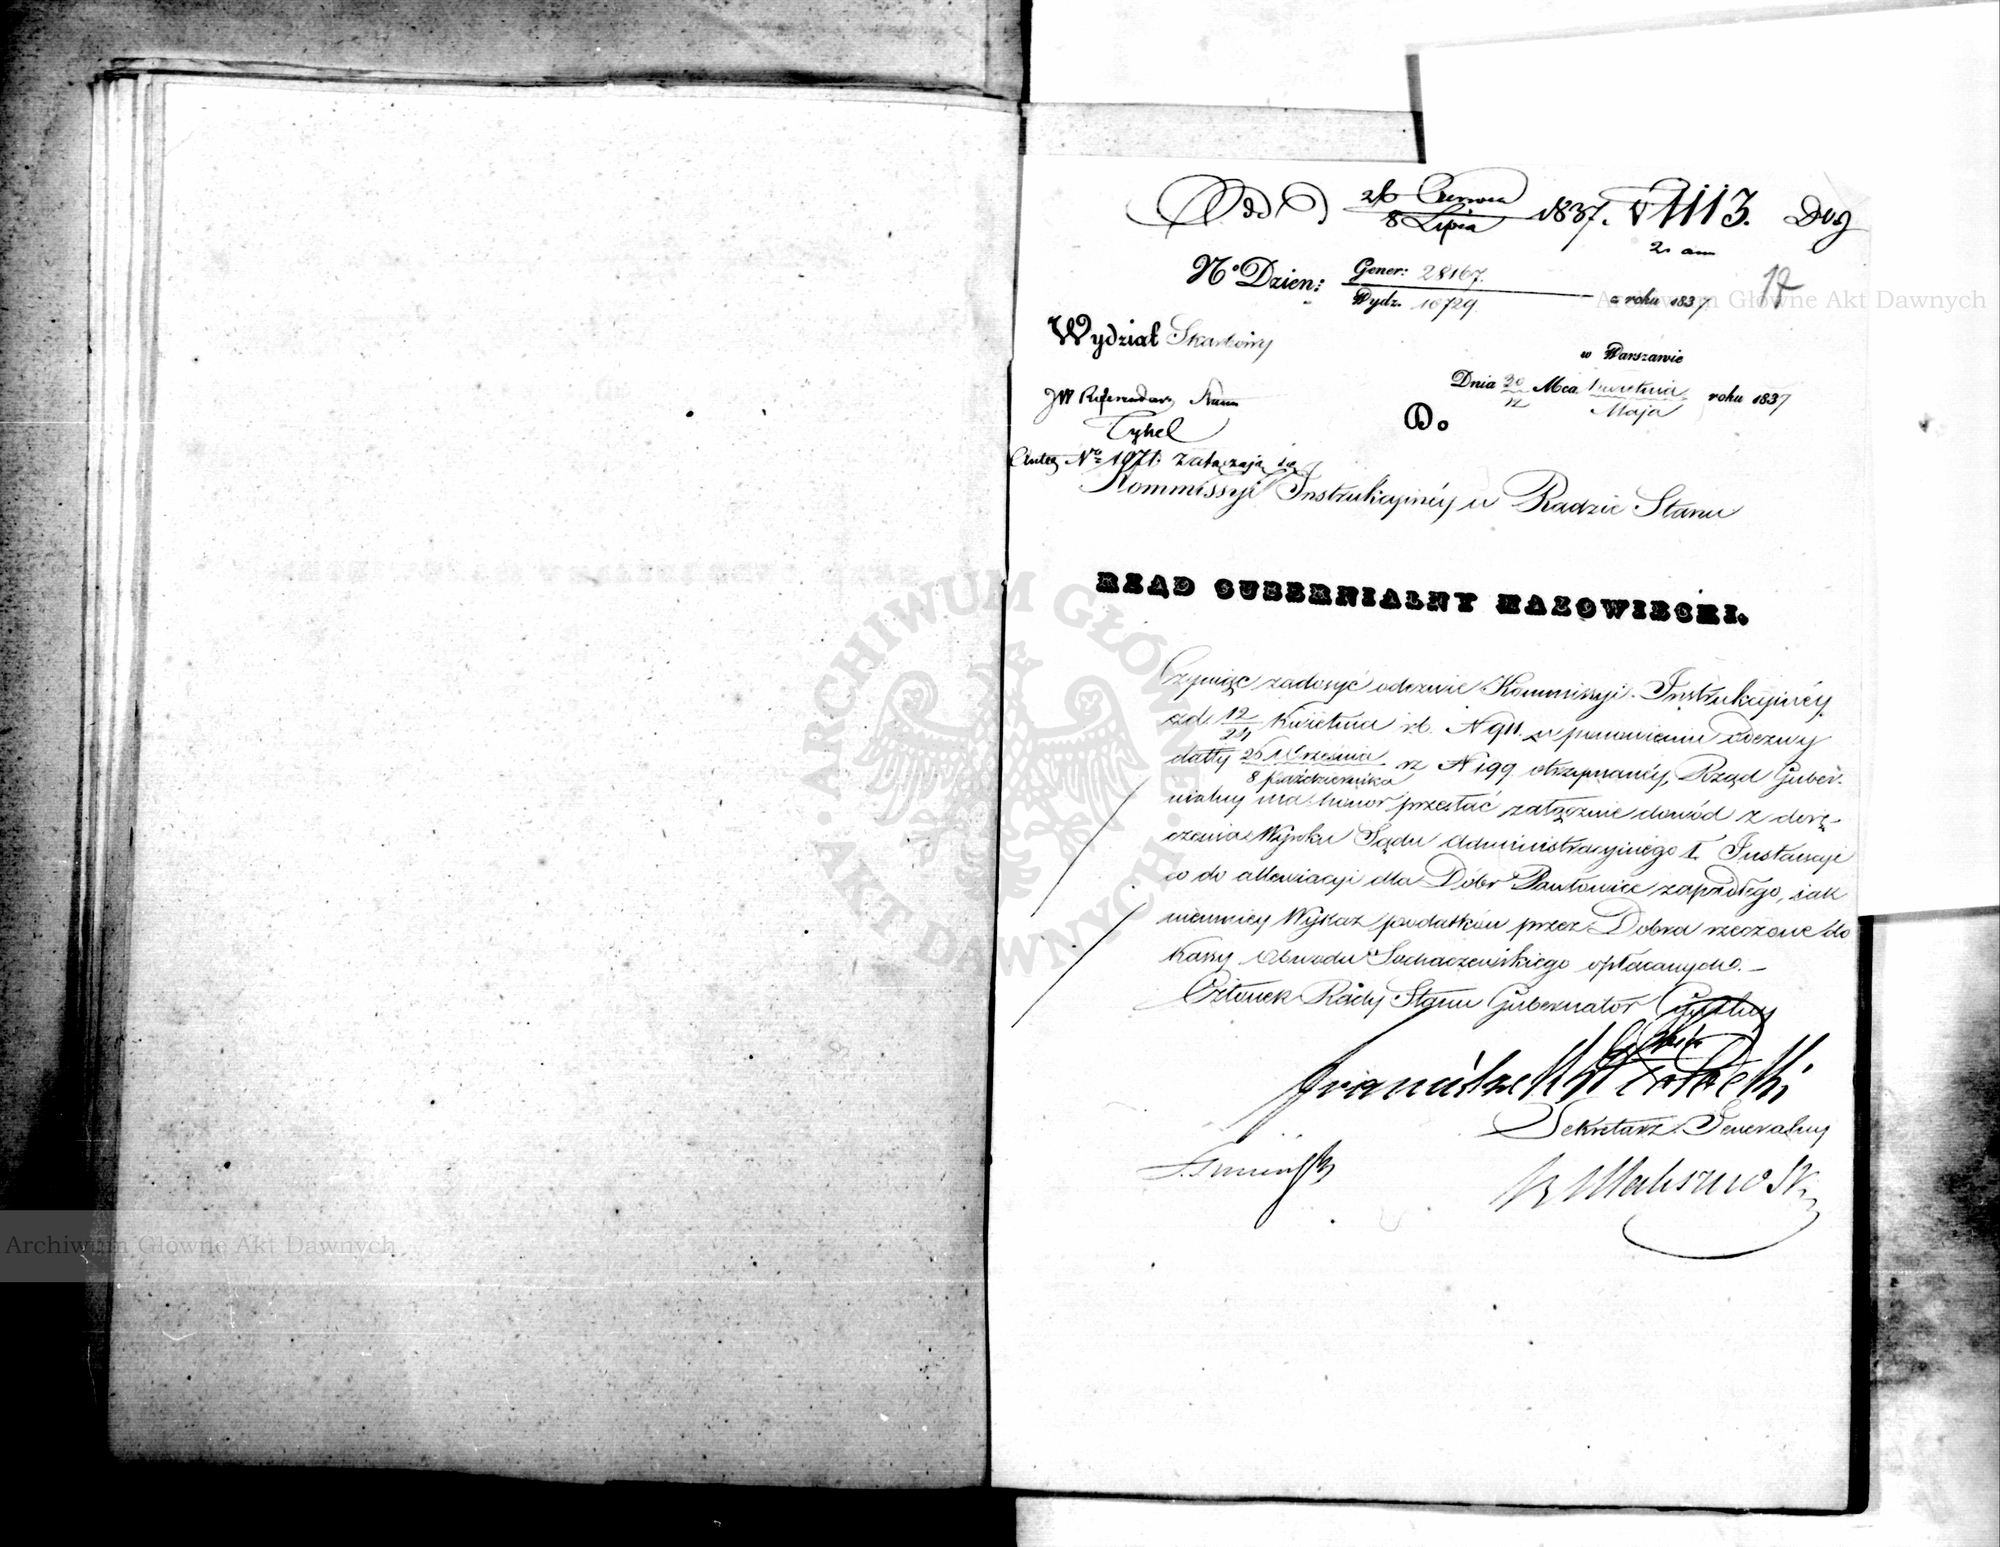 Odd 26 Czerwca 1837. 1113. Dog
8 Lipca
2 am
17
No Dzien: Gener: 28167.
Wydz. 10729 roku 1837
Archiwum Główne Akt Dawnych
Wydział Skarbowy
w Warszawie
Dnia 30 Mca Kwietnia roku 1837
12 Maja
JW Referendarz Stanu
Tykel
Do
No 1071. załączają się
Kommissyi Instrukcyinéy w Radzie Stanu
RZĄD GUBERNIALNY MAZOWIECKI.
Czyniąc zadosyć odezwie Kommissyi Instrukcyinéy
zd. 12/24 Kwietnia r.b. N 911. w ponowieniu Odezwy
datty 26 Września rz N 199 otrzymanéy, Rząd Guber-
8 Października
nialny ma honor przesłać załącznie dowód z dorę-
czenia Wyroku Sądu Administracyinego I Instancyi
co do allewiacyi dla Dóbr zapadłego, iak
niemniey Wykaz podatków przez Dobra rzeczone do
Kassy Obwodu Sochaczewskiego opłacanych. —
Członek Rady Stanu Gubernator Cywilny
Sekretarz Generalny
ARCHIWUM GŁÓWNE AKT DAWNYCH
Archiwum Główne Akt Dawnych